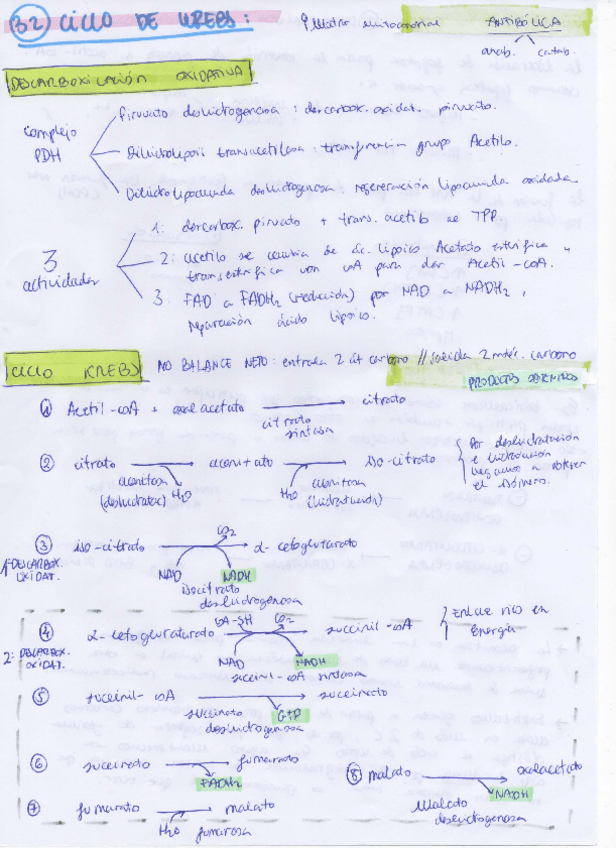 32) CICLO DE KREBS: Matriz mitocondrial ANFIBÓLICA
anab. catab.
DESCARBOXILACIÓN OXIDATIVA
Complejo PDH
Piruvato deshidrogenasa: descarbox. oxidat. piruvato.
transacetilasa: transferencia grupo Acetilo.
deshidrogenasa: regeneración lipoamida oxidada
3 actividades
1: descarbox. piruvato + trans. acetilo TPP
2: acetilo se ác. lipoico Acetato y
con CoA para dar Acetil-CoA.
3. FAD a FADH2 (reducción) por NAD a NADH2,
reparación ácido lipoico.
CICLO KREBS NO BALANCE NETO: entrada 2 át carbono // salida 2 carbono
PRODUCTOS OBTENIDOS
1 Acetil-CoA + oxalacetato citrato
citrato sintasa
2 citrato aconitato iso-citrato
aconitasa (deshidratac) H2O H2O aconitasa (hidratación)
Por deshidratación
e hidratación
llegamos a obtener
el isómero.
3 iso-citrato CO2 α-cetoglutarato
1ª DESCARBOX. OXIDAT.
NAD NADH
Isocitrato deshidrogenasa
4 α-cetoglutarato CoA-SH CO2 succinil-CoA
Enlace rico en
Energía
2ª DESCARBOX. OXIDAT.
NAD NADH
succinil-CoA sintasa
5 succinil-CoA succinato
succinato deshidrogenasa GTP
6 succinato fumarato
FADH2
8 malato oxalacetato
NADH
Malato deshidrogenasa
7 fumarato malato
H2O fumarasa